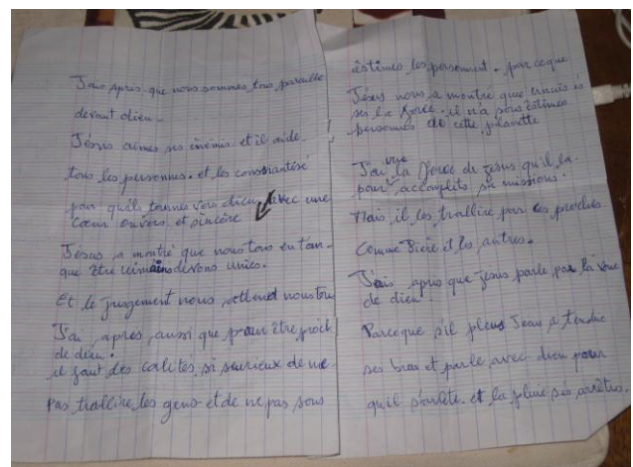 J'ais apris que nous sommes tous pareille
devant dieu.
Jésus aimes ses énémis et il aide
tous les personnes. et les
pour qu'ils tournes vers dieu avec une
cœur ouvers et sincère
Jésus a montré que nous tous en tan-
que être devons unies.
Et le jusgement nous attend nous tous
J'ai, apres, aussi que pour être proch
de dieu.
il faut des calités, si seurieux de ne
pas trallire, les gens et de ne pas sous
éstimes les personnent. par ceque
Jésus nous a montré que
sa force. il n'a sous éstimés
personnes de cette planette
J'ai vue la force de Jesus qu'il la
pour accomplits sa missions.
Mais, il les trallire par ces proches
Comme Pière et les antres.
J'ais apris que Jesus parle par la voue
de dieu.
Parceque s'il pleus Jean a tendue
ses bras et parle avec dieu pour
qu'il s'arlète. et la pluie s'és arrètés.